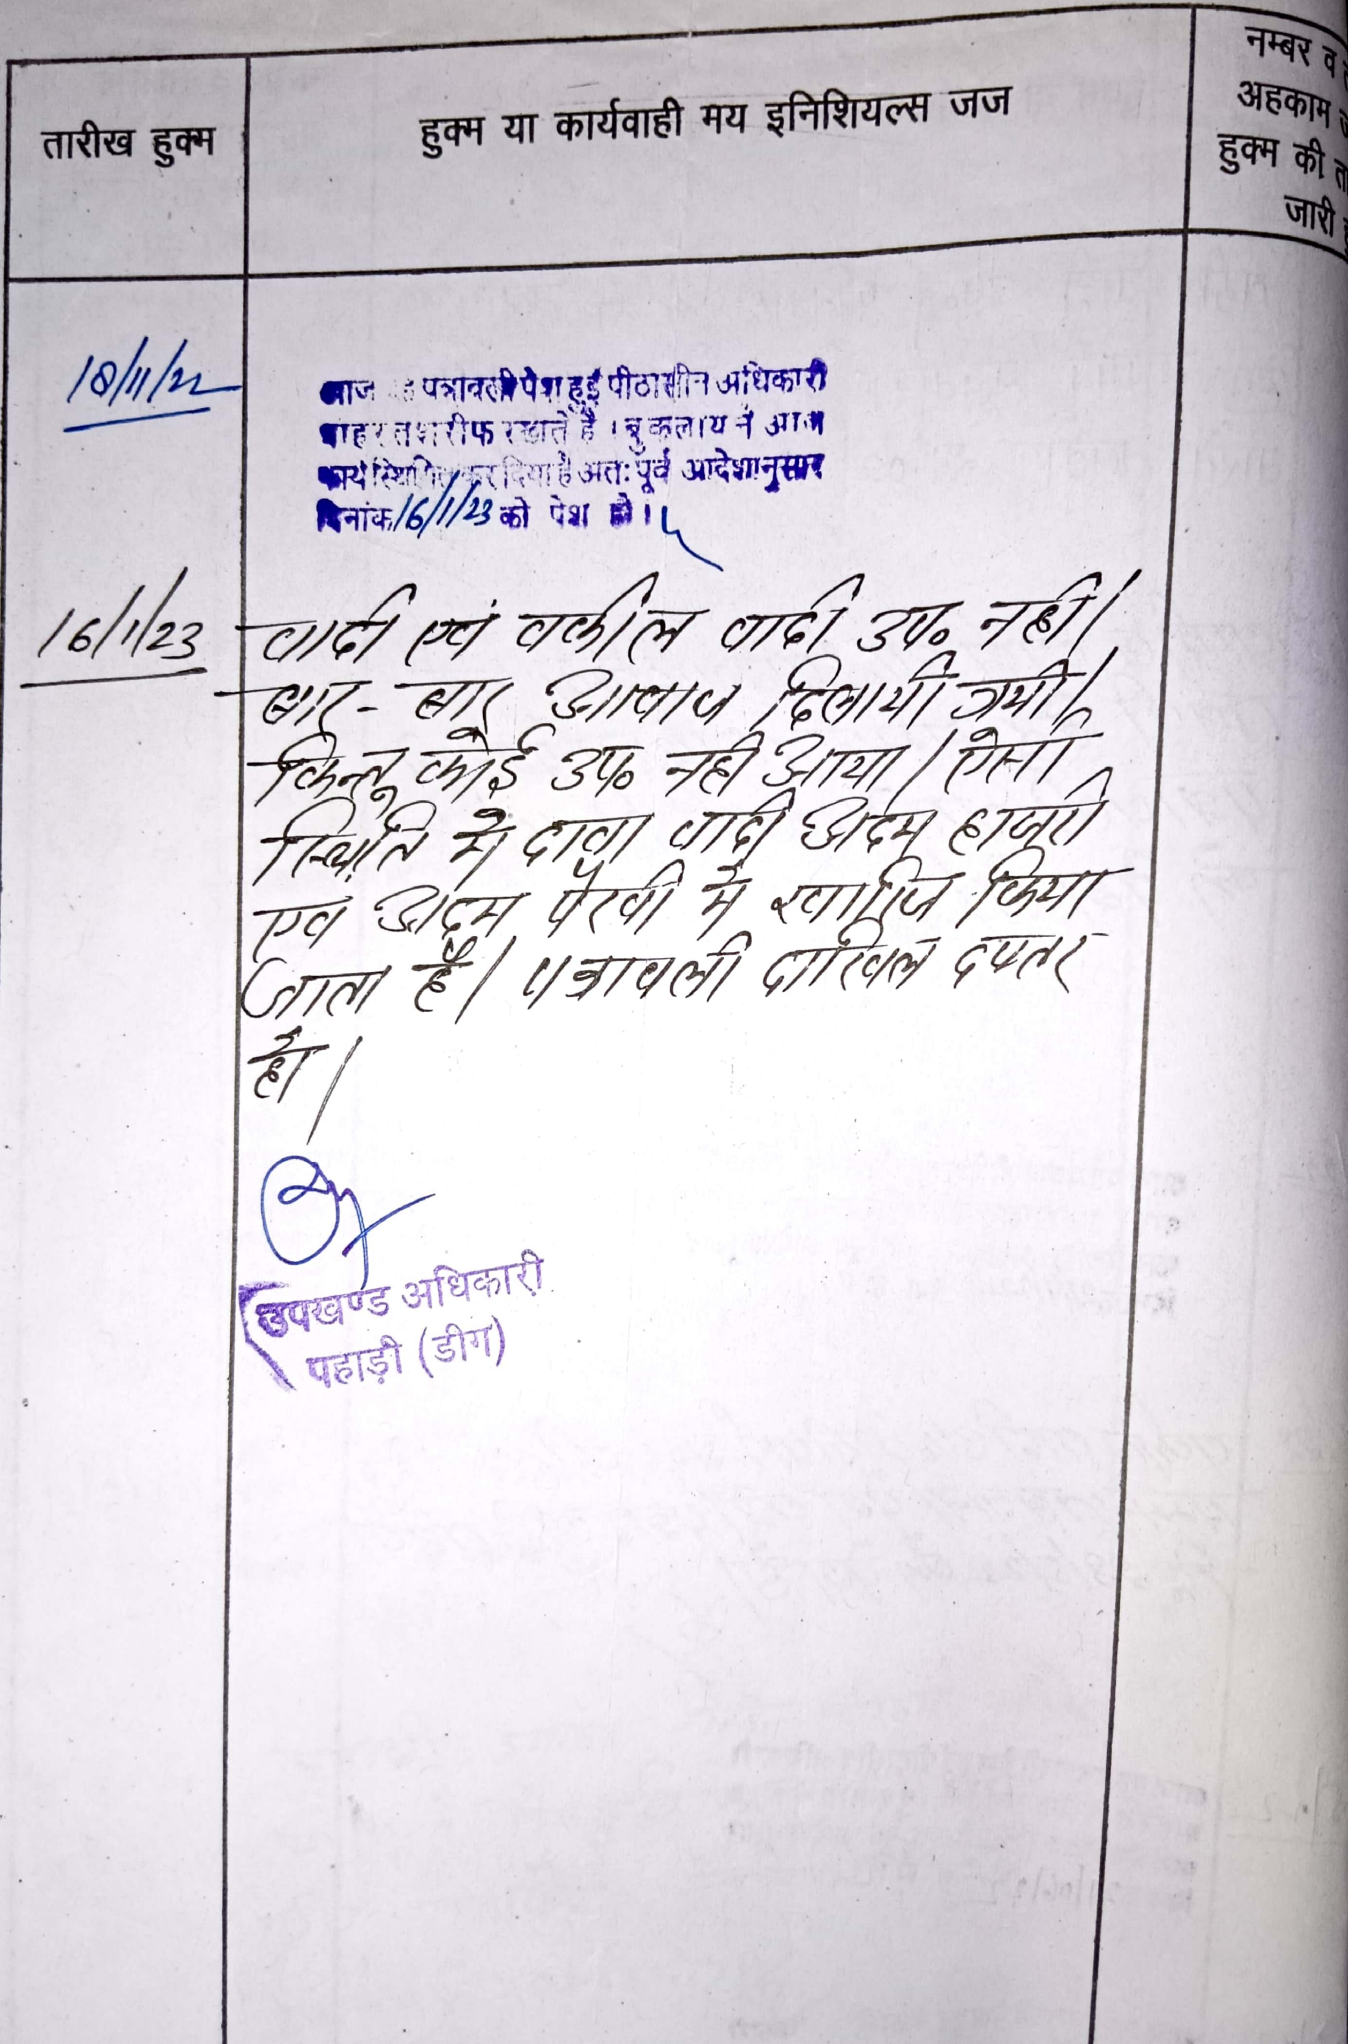 तारीख हुक्म
हुक्म या कार्यवाही मय इनिशियल्स जज
नम्बर व
अहकाम
हुक्म की
जारी
18/11/22
आज पत्रावली पेश हुई पीठासीन अधिकारी
बाहर तशरीफ रखते है । वुकलाय ने आज
कार्य स्थगित कर दिया है अतः पूर्व आदेशानुसार
दिनांक 16/1/23 को पेश हो ।
16/1/23
वादी एवं वकील वादी उप० नही।
बार-बार आवाज दिलायी गयी।
किन्तु कोई उप० नही आया। ऐसी
स्थिति मे दावा वादी अदम हाजरी
एव अदम पैरवी मे खारिज किया
जाता है। पत्रावली दाखिल दफ्तर
हो।
उपखण्ड अधिकारी
पहाड़ी (डीग)